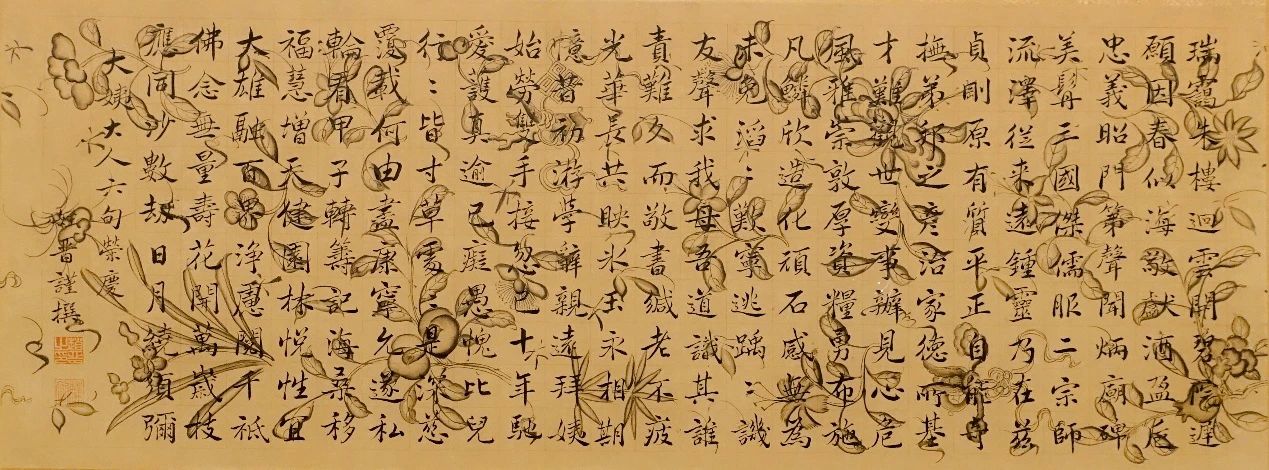 瑞靄朱樓迥雲開碧陰遲
願因春似海敬獻酒盈卮
忠義昭門第聲聞炳廟碑
美髯三國傑儒服二宗師
流澤從來遠鍾靈乃在茲
貞剛原有質平正自能守
撫弟邦之彥治家德所基
才難世變事辦見心危
風雅崇敦厚資糧勇布施
凡鱗欣造化頑石感無為
未免滔〻歎寧逃踽〻譏
友聲求我母吾道識其誰
責難久而敬書緘老不疲
光華長共映氷玉永相期
憶昔初游學辭親遠拜姨
始勞雙手接忽已十年馳
愛護真逾己癡愚愧比兒
行〻皆寸草處〻是深慈
覆載何由盡康寧允遂私
輪看甲子轉籌記海桑移
福慧增天健園林悅性宜
大雄融百界淨意闢千祇
佛念無量壽花開萬歲枝
應同沙數劫日月繞須彌
大姨大人六旬榮慶
晉謹撰